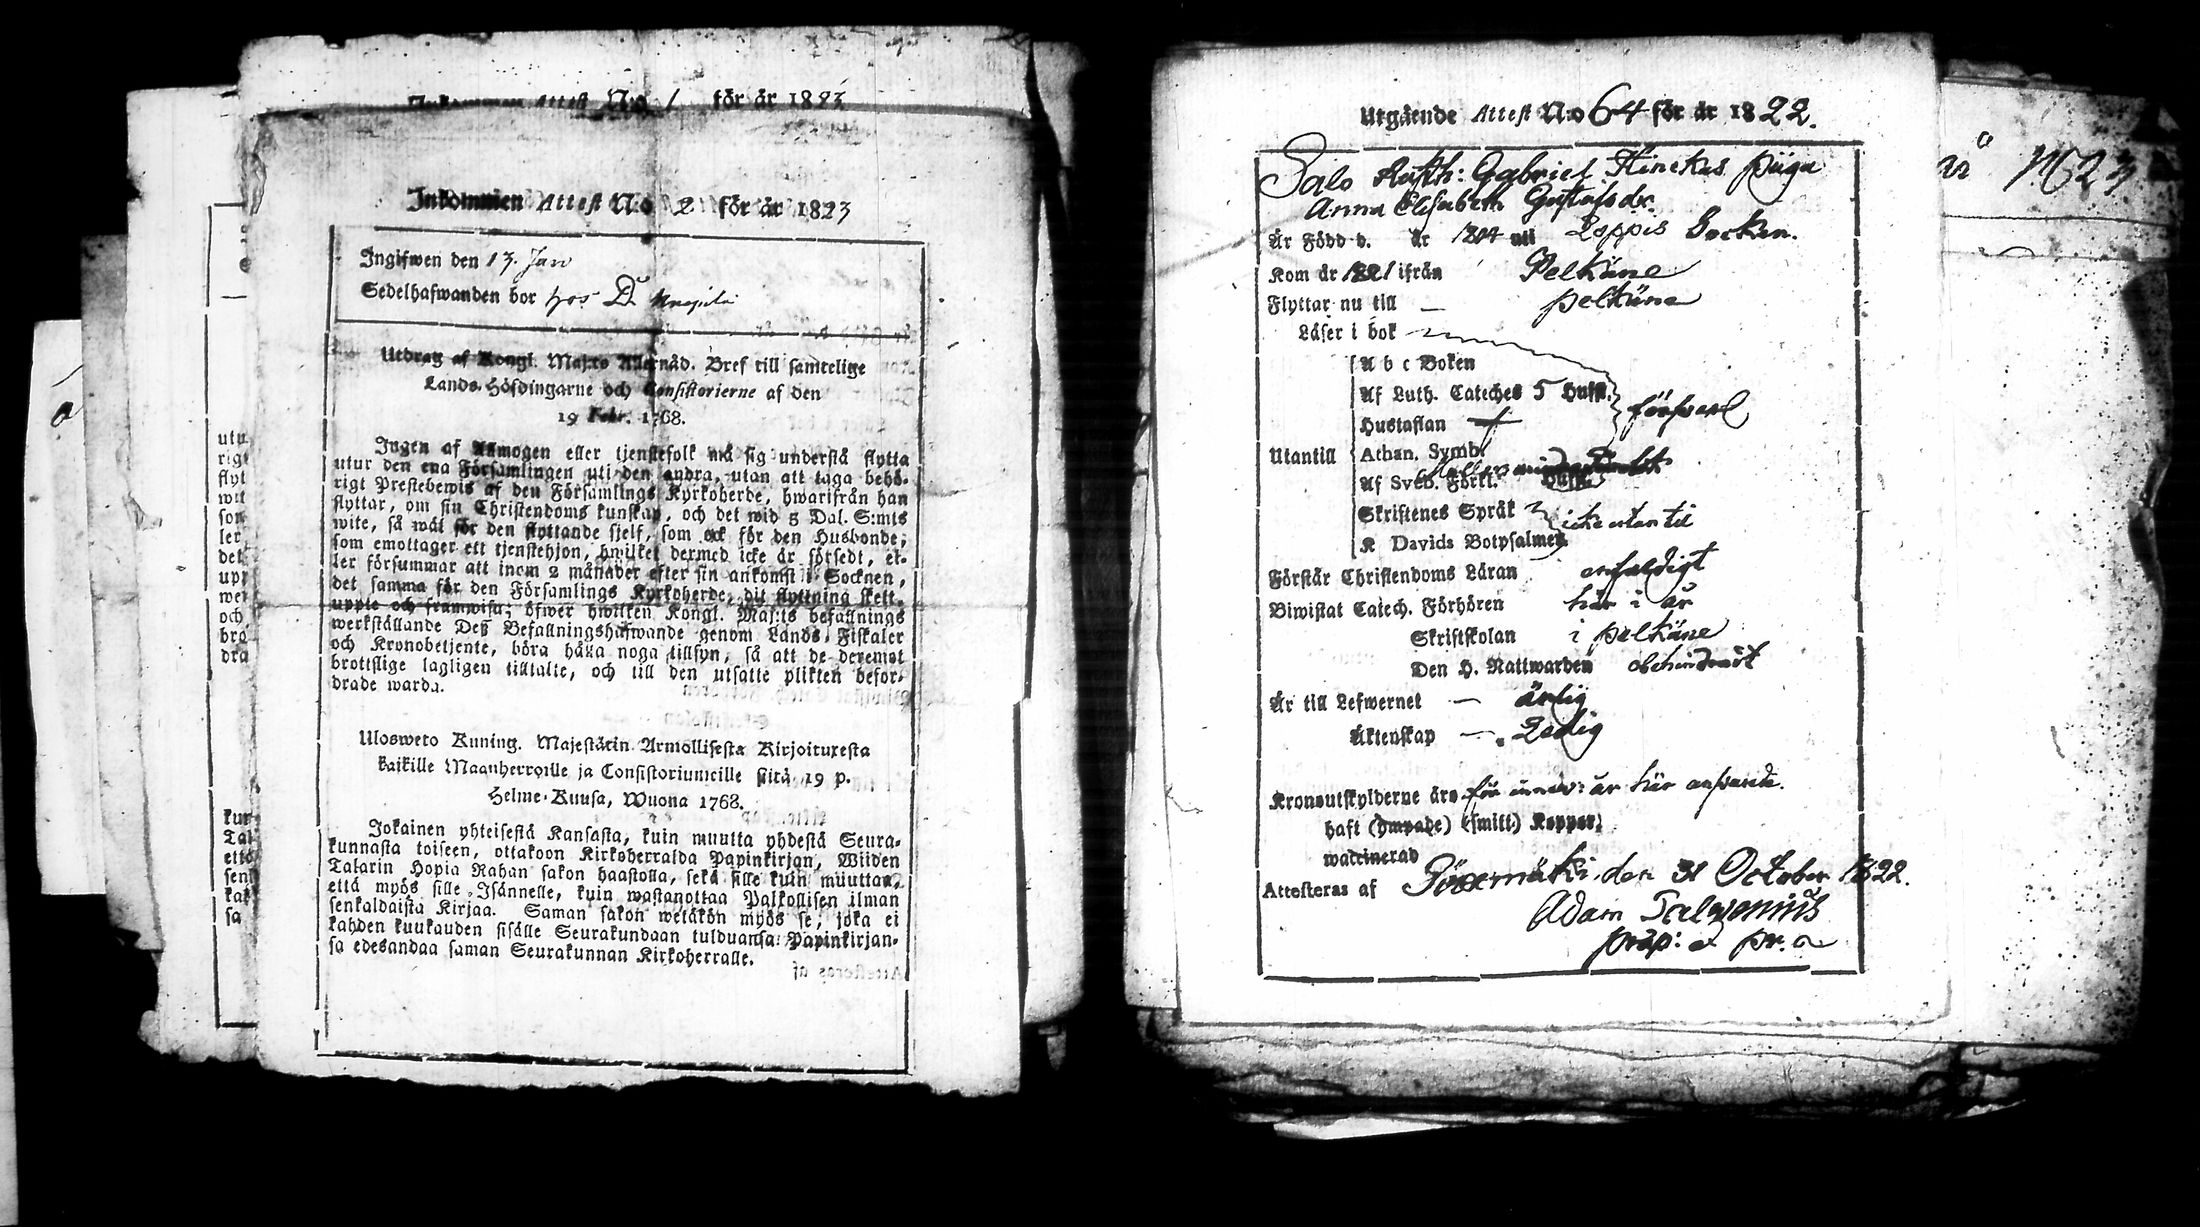 Inkommen Attest N:o 1 för år 1823
Inkommen Attest N:o 2 för år 1823
Ingifwen den 13. Jan
Sedelhafwanden bor hos D.
Utdrag af Kongl. Maj:ts Allernåd. Bref till samtelige
Lands-Höfdingarne och Consistorierne af den
19 Febr. 1768.
Ingen af Allmogen eller tjenstefolk må sig understå flytta
utur den ena Församlingen uti den andra, utan att taga behö-
rigt Prestebewis af den Församlings Kyrkoherde, hwarifrån han
flyttar, om sin Christendoms kunskap, och det wid 5 Dal. S:mts
wite, så wäl för den flyttande sjelf, som ock för den Husbonde,
som emottager ett tjenstehjon, hwilket dermed icke är försedt, el-
ler försummar att inom 2 månader efter sin ankomst i Socknen,
det samma för den Församlings Kyrkoherde, dit flyttning skett,
uppte och framwisa; öfwer hwilken Kongl. Maj:ts befallnings
werkställande Deß Befallningshafwande genom Lands-Fiskaler
och Kronobetjente, böra hålla noga tillsyn, så att de deremot
brottslige lagligen tilltalte, och till den utsatte plikten befor-
drade warda.
Ulosweto Kuning. Majestätin Armollisesta Kirjoituxesta
kaikille Maanherroille ja Consistoriumeille siitä 19 p.
Helme-Kuusa, Wuona 1768.
Jokainen yhteisestä Kansasta, kuin muutta yhdestä Seura-
kunnasta toiseen, ottakoon Kirkoherralda Papinkirjan, Wiiden
Talarin Hopia Rahan sakon haastolla, sekä sille kuin muuttaa,
että myös sille Isännelle, kuin wastanottaa Palkollisen ilman
senkaldaista Kirjaa. Saman sakon wetäkön myös se, joka ei
kahden kuukauden sisälle Seurakundaan tulduansa Papinkirjan-
sa edesandaa saman Seurakunnan Kirkoherralle.
Attesteras af
Utgående Attest N:o 64 för år 1822.
Salo Rusth: Gabriel Hinckas piiga
Anna Elisabeth Gustafsdr.
Är Född d. år 1804 uti Loppis Socken.
Kom år 1821 ifrån Pelkäne
Flyttar nu till — pelkäne
Läser i bok
A b c Boken
Af Luth. Cateches 5 Hufst.
Hustaflan
försvarl
Utantill
Athan. Symb.
Af Sveb. Förkl.
Skriftenes Språk
icke utantil
K Davids Botpsalmer
Förstår Christendoms Läran enfaldigt
Biwistat Catech. Förhören här i år
Skriftskolan i pelkäne
Den H. Nattwarden obehindrat
Är till Lefwernet — ärlig
Äktenskap — Ledig
Kronoutskylderne äro för innev: år här
haft (ympade) (smitt) Koppor,
waccinerad
Attesteras af den 31 October 1822.
Adam Salvenius
præp: &